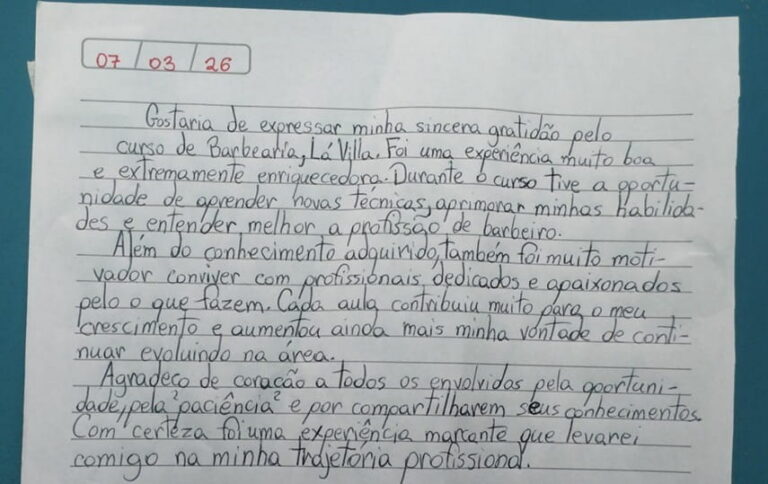 07 / 03 / 26
Gostaria de expressar minha sincera gratidão pelo
curso de Barbearia, Lá Villa. Foi uma experiência muito boa
e extremamente enriquecedora. Durante o curso tive a oportu-
nidade de aprender novas técnicas, aprimorar minhas habilida-
des e entender melhor a profissão de barbeiro.
Além do conhecimento adquirido, também foi muito moti-
vador conviver com profissionais dedicados e apaixonados
pelo o que fazem. Cada aula contribuiu muito para o meu
crescimento e aumentou ainda mais minha vontade de conti-
nuar evoluindo na área.
Agradeço de coração a todos os envolvidos pela oportuni-
dade, pela "paciência" e por compartilharem seus conhecimentos.
Com certeza foi uma experiência marcante que levarei
comigo na minha trajetória profissional.